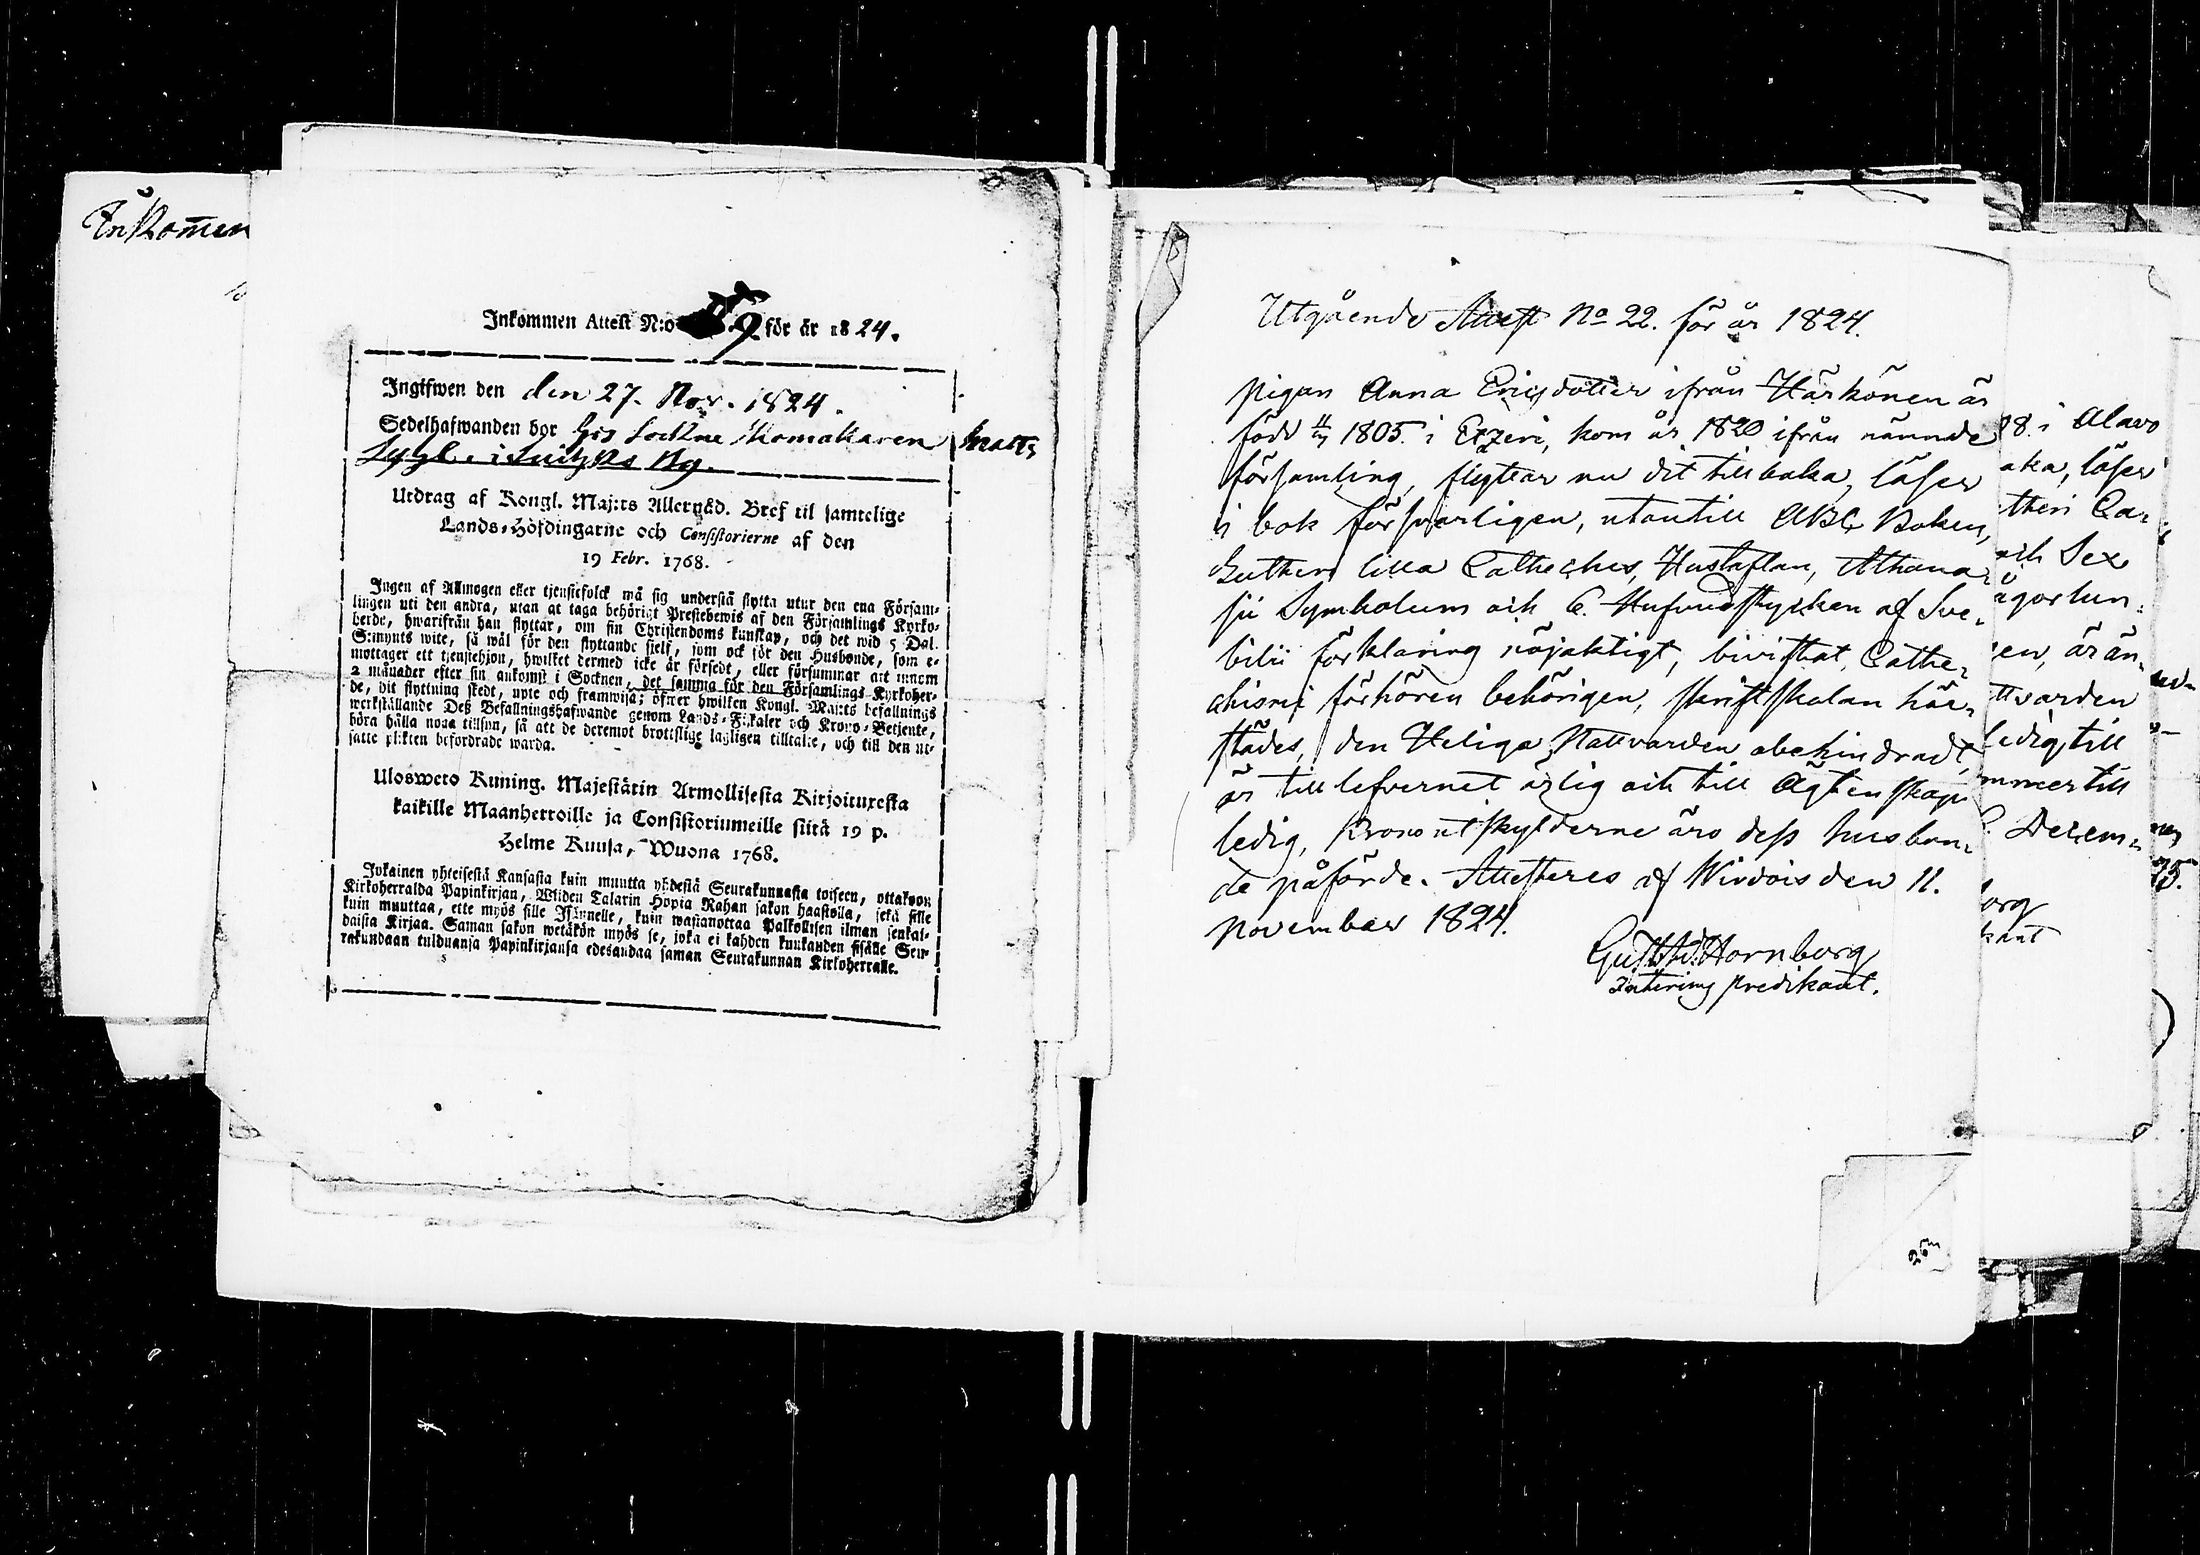 Inkomen
Inkommen Attest N:o 9 för år 1824.
Ingifwen den den 27. Nov. 1824.
Sedelhafwanden bor hos Sockne Skomakaren Matts
Sygb. i Nyg.
Utdrag af Kongl. Maj:ts Allernåd. Bref til samtelige
Lands-Höfdingarne och Consistorierne af den
19 Febr. 1768.
Ingen af Allmogen eller tjenstefolck må sig understå flytta utur den ena Försam-
lingen uti den andra, utan at taga behörigt Prestebewis af den Församlings Kyrko-
herde, hwarifrån han flyttar, om sin Christendoms kunskap, och det wid 5 Dal.
S:mynts wite, så wäl för den flyttande sjelf, som ock för den Husbonde, som e-
mottager ett tjenstehjon, hwilket dermed icke är försedt, eller försummar att innom
2 månader efter sin ankomst i Socknen, det samma för den Församlings Kyrkoher-
de, dit flyttning skedt, upte och framwisa; öfwer hwilken Kongl. Maj:ts befallnings
werkställande Deß Befallningshafwande genom Lands-Fiskaler och Krono-Betjente,
böra hålla noga tillsyn, så att de deremot brottslige lagligen tilltalte, och till den ut-
satte plikten befordrade warda.
Uloswero Kuning. Majestätin Armollisesta Kirjoituxesta
kaikille Maanherroille ja Consistoriumeille siitä 19 p.
Helme Kuusa, Wuona 1768.
Jokainen yhteisestä Kansasta kuin muutta yhdestä Seurakunnasta toiseen, ottakoon
Kirkoherralda Papinkirjan, Wiiden Talarin Hopia Rahan sakon haastolla, sekä sille
kuin muuttaa, ette myös sille Isännelle, kuin wastanottaa Palkollisen ilman senkal-
daista Kirjaa. Saman sakon wetäkön myös se, joka ei kahden kuukauden sisälle Seu-
rakundaan tulduansa Papinkirjansa edesandaa saman Seurakunnan Kirkoherralle.
Utgående Attest No 22. för år 1824.
pigan Anna Ericsdotter ifrån Härkönen är
född 1805. i Etzeri, kom år 1820 ifrån nämnde
församling, flyttar nu dit tillbaka, läser
i bok försvarligen, utantill ABC Boken,
Lutheri lilla Catheches, Hustaflan, Athana-
sii Symbolum och 6. Hufvudstycken af Sve-
bilii förklaring nöjaktigt, bivistat Cathe-
chismi förhören behörigen, skriftskolan här-
städes, den Heliga Nattvarden obehindradt,
är till lefvernet ärlig och till Ägtenskap
ledig, Kronoutskylderne äro dess husbon-
de påförde. Attesteres af Wirdois den 11.
november 1824.
Gust. Ad. Hornborg
Interims predikant.
28. i Alavo
aka, läser
theri Ca-
och Sex
ågorlun-
en, är än-
ttvarden
ledig till
mmer till
Decem-
org
kant
25.